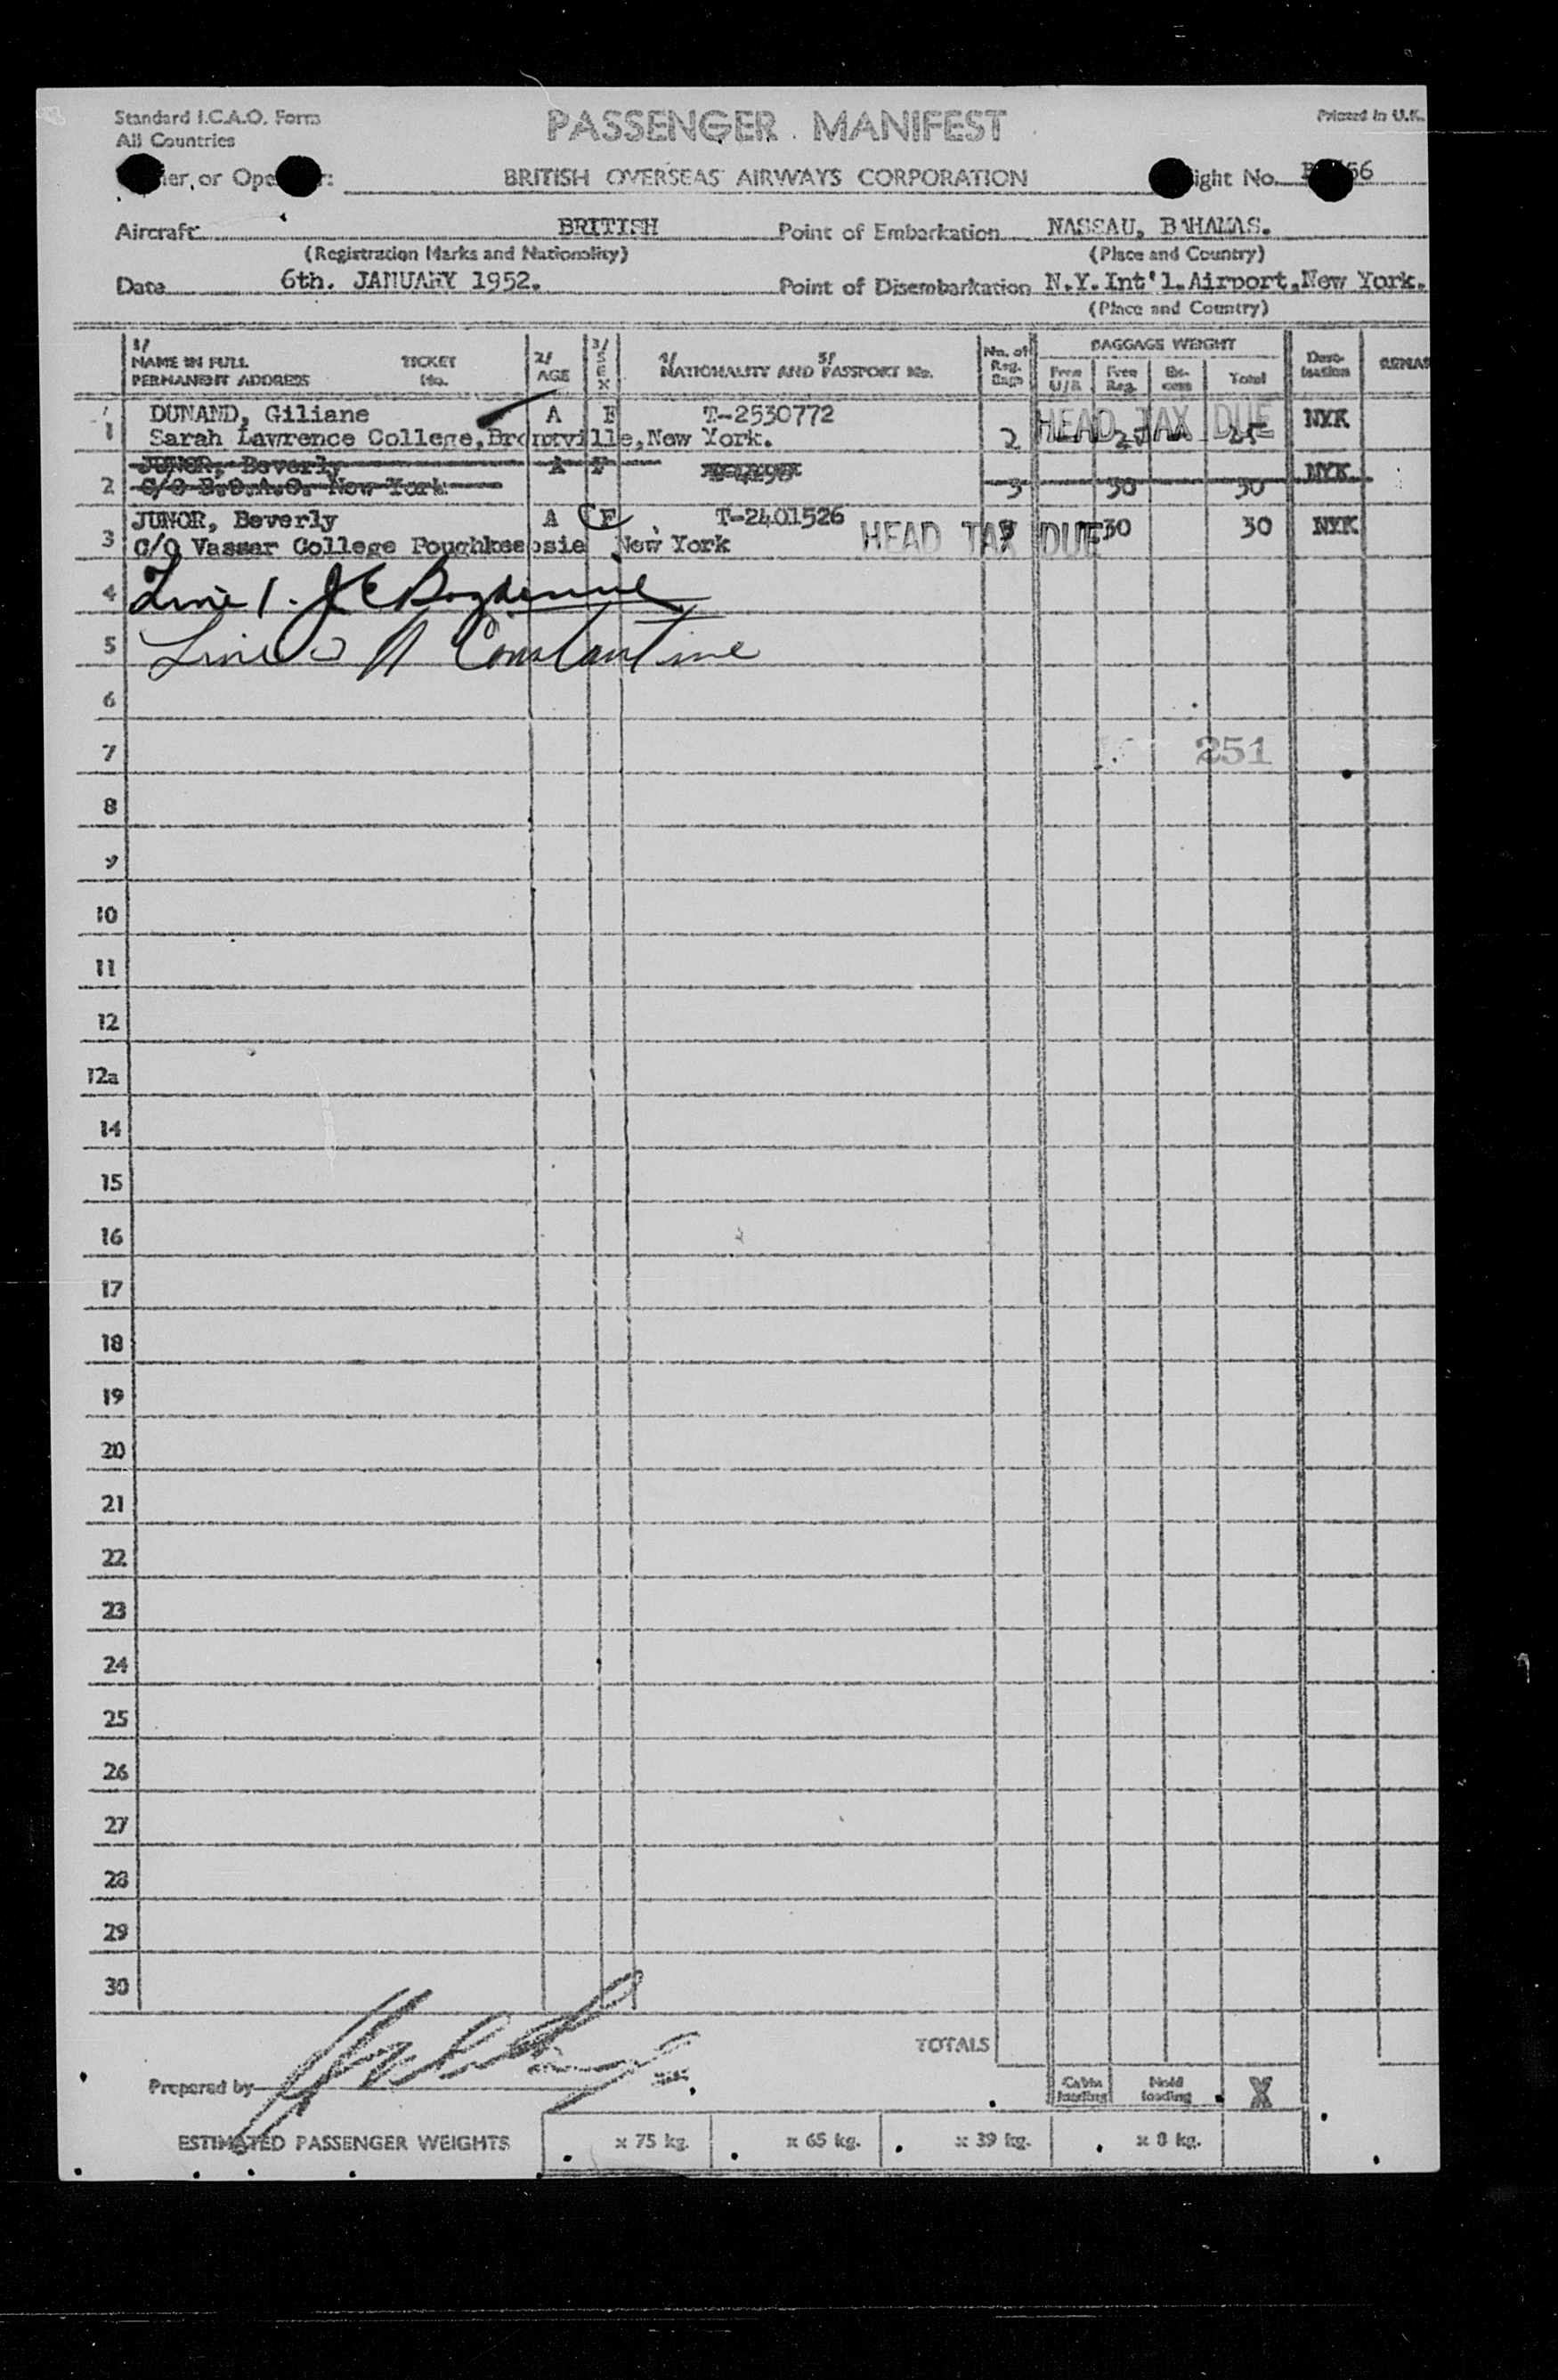 Standard I.C.A.O. Form
All Countries
PASSENGER MANIFEST
Printed in U.K.
or
BRITISH OVERSEAS AIRWAYS CORPORATION
No.
Aircraft BRITISH
Point of Embarkation NASSAU, BAHAMAS.
(Registration Marks and Nationality)
(Place and Country)
Date 6th. JANUARY 1952.
Point of Disembarkation N.Y.Int'l.Airport,New York.
(Place and Country)
1/ NAME IN FULL PERMANENT ADDRESS
TICKET No.
2/ AGE
3/ SEX
4/ 5/ NATIONALITY AND PASSPORT No.
No. of Reg. Bags
BAGGAGE WEIGHT
Free U/R
Free Reg.
Ex- cess
Total
Dest- ination
1 DUNAND, Giliane A F T-2530772 NYK
Sarah Lawrence College, New York. 2
HEAD TAX DUE
2 JUNOR, Beverly A F 3 30 30 NYK
C/O B.O.A.C. New York
3 JUNOR, Beverly A F T-2401526 30 30 NYK
C/O Vassar College Poughkeepsie New York
HEAD TAX DUE
4 Line 1.
5 Line 3 Constantine
6
7 251
8
9
10
11
12
12a
14
15
16
17
18
19
20
21
22
23
24
25
26
27
28
29
30
TOTALS
Prepared by
Cabin loading
Hold loading
X
ESTIMATED PASSENGER WEIGHTS
x 75 kg.
x 65 kg.
x 39 kg.
x 8 kg.